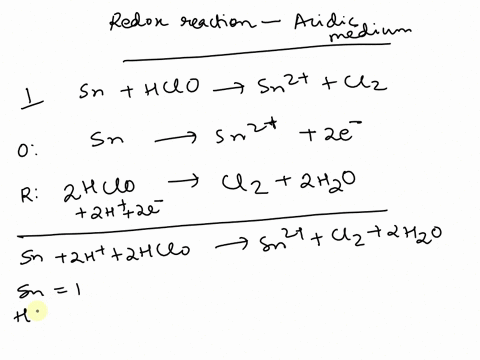 Redox reaction — Acidic
medium
1 Sn + HClO → Sn²⁺ + Cl₂
O: Sn → Sn²⁺ + 2e⁻
R: 2HClO → Cl₂ + 2H₂O
+ 2H⁺ + 2e⁻
Sn + 2H⁺ + 2HClO → Sn²⁺ + Cl₂ + 2H₂O
Sn = 1
H